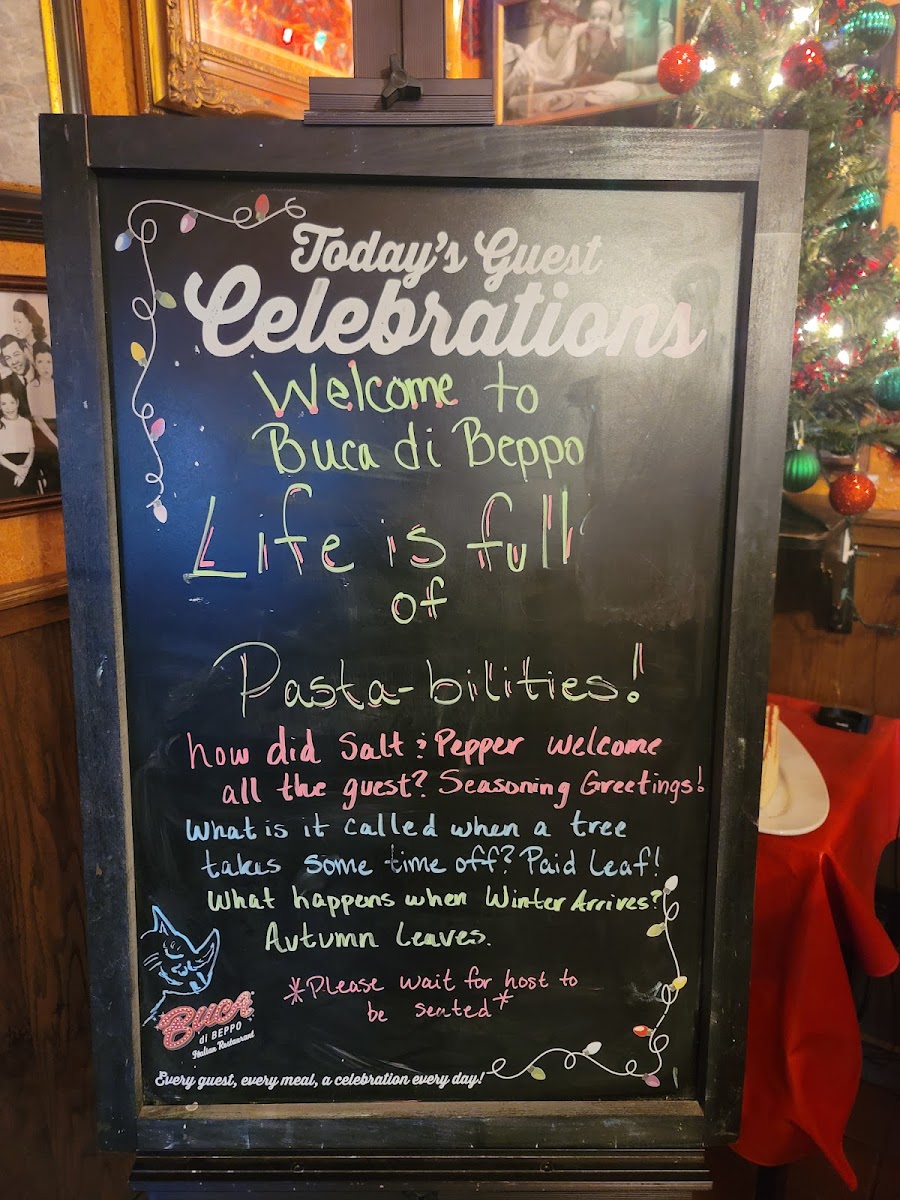 Today's Guest
Celebrations
Welcome to
Buca di Beppo
Life is full
of
Pasta-bilities!
how did Salt & Pepper welcome
all the guest? Seasoning Greetings!
What is it called when a tree
takes some time off? Paid Leaf!
What happens when Winter Arrives?
Autumn Leaves.
*Please wait for host to
be seated*
Buca
di BEPPO
Italian Restaurant
Every guest, every meal, a celebration every day!